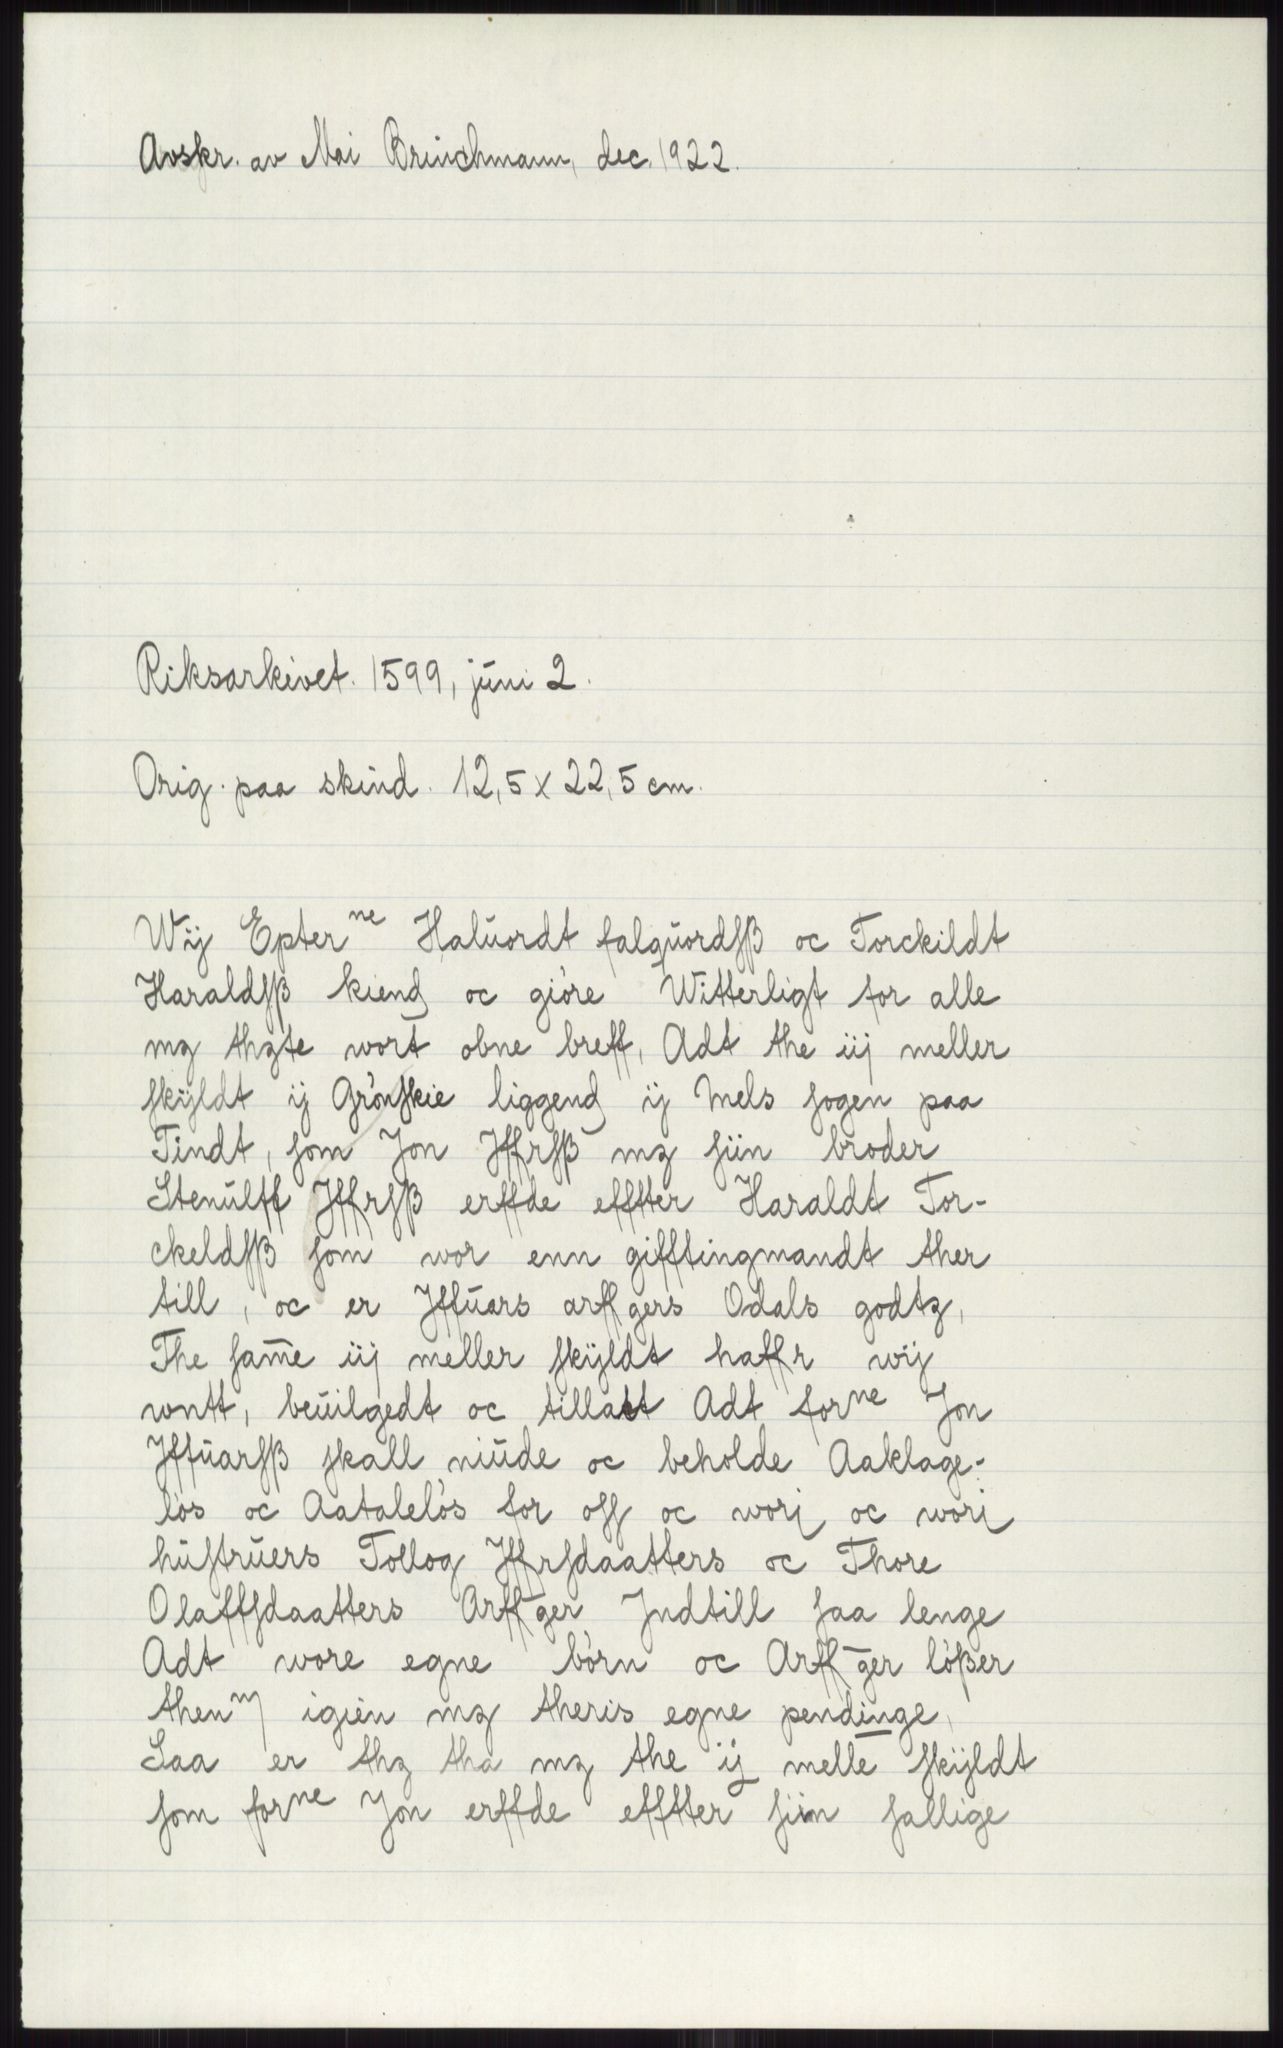 Avskr. av Mai Brinchmann, dec. 1922.
Riksarkivet. 1599, juni 2.
Orig. paa skind. 12,5 x 22,5 cm.
Wij Epterⁿᵉ Haluordt falquordsß oc Torckildt
Haraldsß kiend oc gióre Witterligt for alle
mz thzte wort obne breff, Adt the iij meller
skyldt ij Grónskie liggend ij Mels sogen paa
Tindt, som Jon Jffrsß mz siin broder
Stenulff Jffrsß erffde effter Haraldt Tor-
ckeldsß som wor enn gifftingmandt ther
till, oc er Jffuars arffgers Odals godtz,
The sam̄e iij meller skyldt haffr wij
wntt, beuilgedt oc tillatt Adt forⁿᵉ Jon
Jffuarsß skall niude oc beholde Aaklage-
lós oc Aatalelós for oss oc worj oc worj
hustruers Tollog Jffrsdaatters oc Thore
Olaffsdaatters Arff̄ger Jndtill saa lenge
Adt wore egne bórn oc Arff̄ger lóßer
thenᵐ igien mz theris egne pendinge,
Saa er thz tha mz the ij mellē skyldt
som forⁿᵉ Jon erffde effter siin sallige